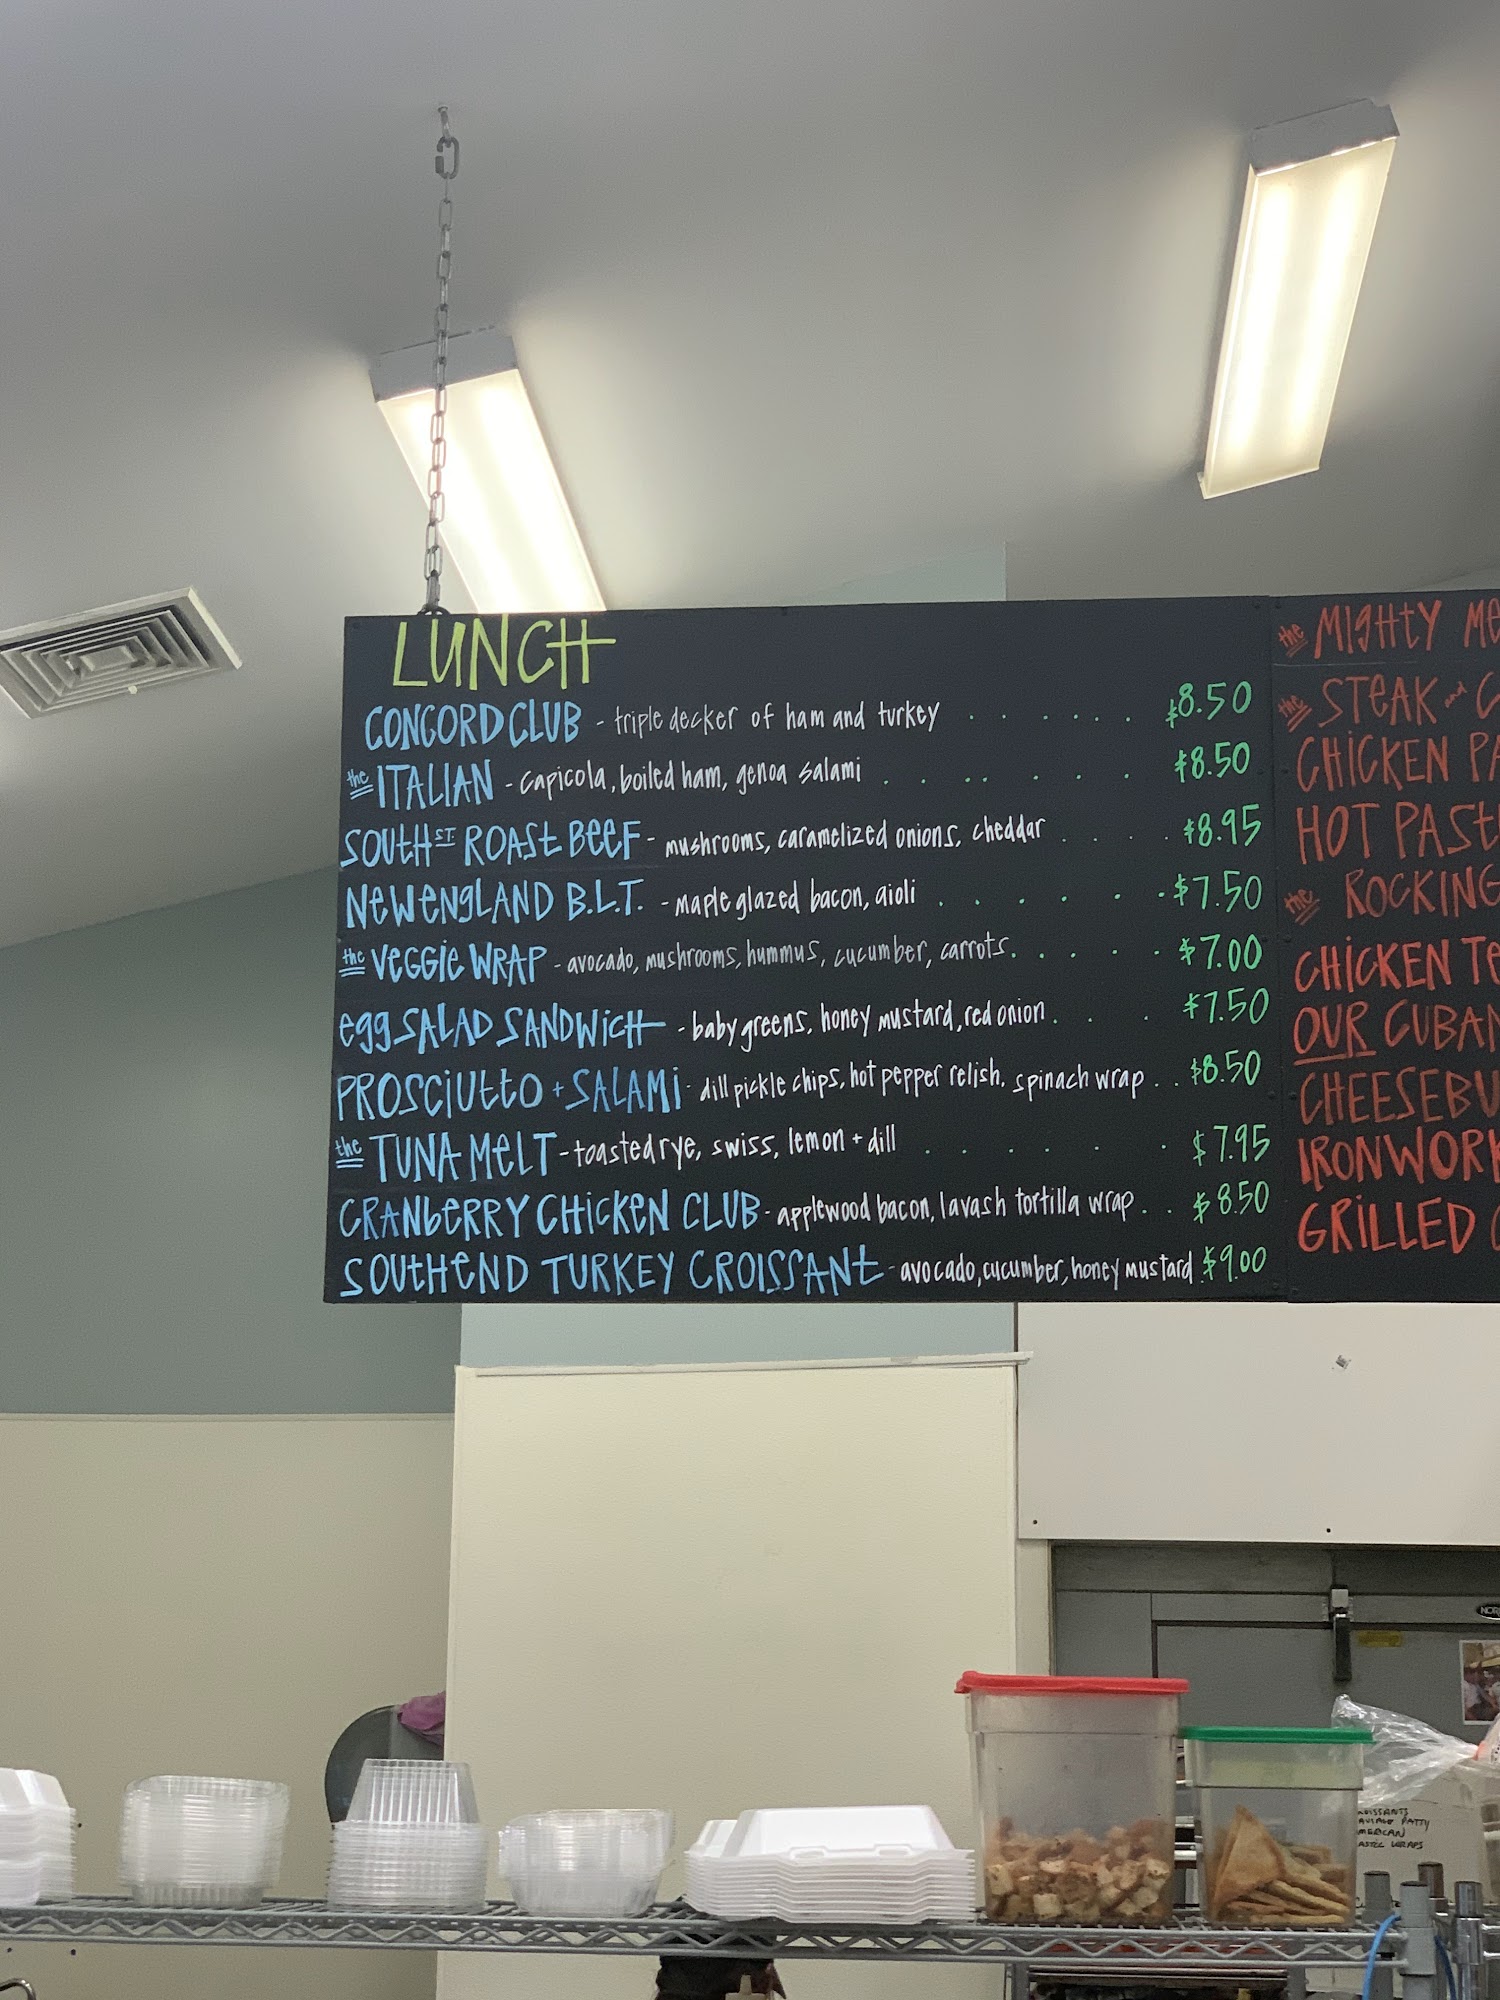 LUNCH
CONCORD CLUB - triple decker of ham and turkey . . . . . . $8.50
the ITALIAN - capicola, boiled ham, genoa salami . . . . . . $8.50
SOUTH ST. ROAST BEEF - mushrooms, caramelized onions, cheddar . . . . $8.95
NEW ENGLAND B.L.T. - maple glazed bacon, aioli . . . . . . $7.50
the VEGGIE WRAP - avocado, mushrooms, hummus, cucumber, carrots. . . . . $7.00
egg SALAD SANDWICH - baby greens, honey mustard, red onion . . . $7.50
PROSCIUTTO + SALAMI - dill pickle chips, hot pepper relish, spinach wrap . . $8.50
the TUNA MELT - toasted rye, swiss, lemon + dill . . . . . $7.95
CRANBERRY CHICKEN CLUB - applewood bacon, lavash tortilla wrap . . $8.50
SOUTHEND TURKEY CROISSANT - avocado, cucumber, honey mustard . $9.00
the MIGHTY
the STEAK and
CHICKEN
HOT
the ROCKING
CHICKEN
OUR CUBAN
GRILLED